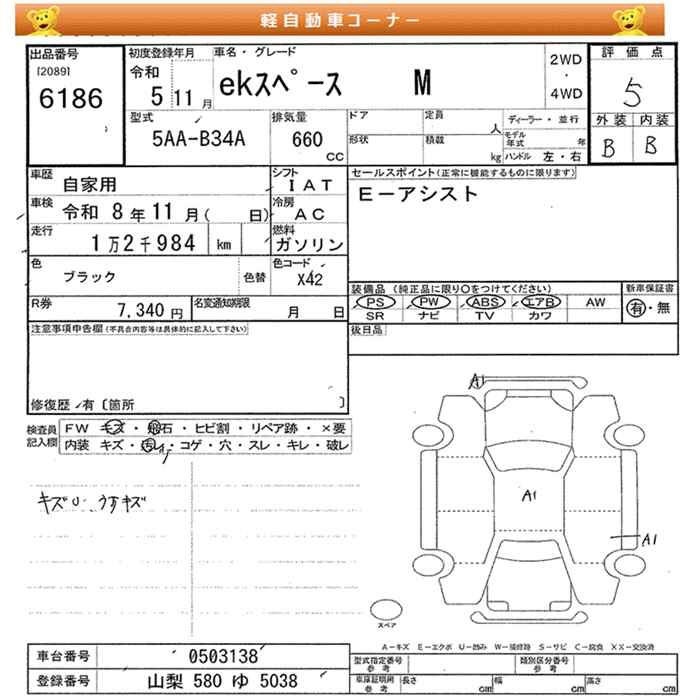 軽自動車コーナー
出品番号
[2089]
6186
初度登録年月
令和
5 11 月
車名・グレード
ekスペース M
2WD
・
4WD
評価点
5
外装 内装
B B
型式
5AA-B34A
排気量
660
CC
ドア
定員
人
ディーラー・並行
形状
積載
kg
モデル年式
年
ハンドル 左・右
車歴
自家用
シフト
I A T
セールスポイント(正常に機能するものに限ります)
E-アシスト
車検
令和 8 年 11 月( 日)
冷房
A C
走行
1万2千984 km
燃料
ガソリン
色
ブラック
色替
色コード
X42
装備品 (純正品に限り○をつけてください)
新車保証書
PS PW ABS エアB AW
有・無
SR ナビ TV カワ
R券
7,340 円
名変通知期限
月 日
後日品
注意事項申告欄(不具合内容等は具体的に記入して下さい)
修復歴・有〔箇所 〕
検査員
記入欄
FW キズ・飛石・ヒビ割・リペア跡・×要
内装 キズ・汚れ・コゲ・穴・スレ・キレ・破レ
A1
A1
A1
スペア
A-キズ E-エクボ U-凹み W-補修跡 S-サビ C-腐食 XX-交換済
車台番号
0503138
登録番号
山梨 580 ゆ 5038
型式指定番号
参考
類別区分番号
参考
車庫証明用
参考
長さ
cm
幅
cm
高さ
cm